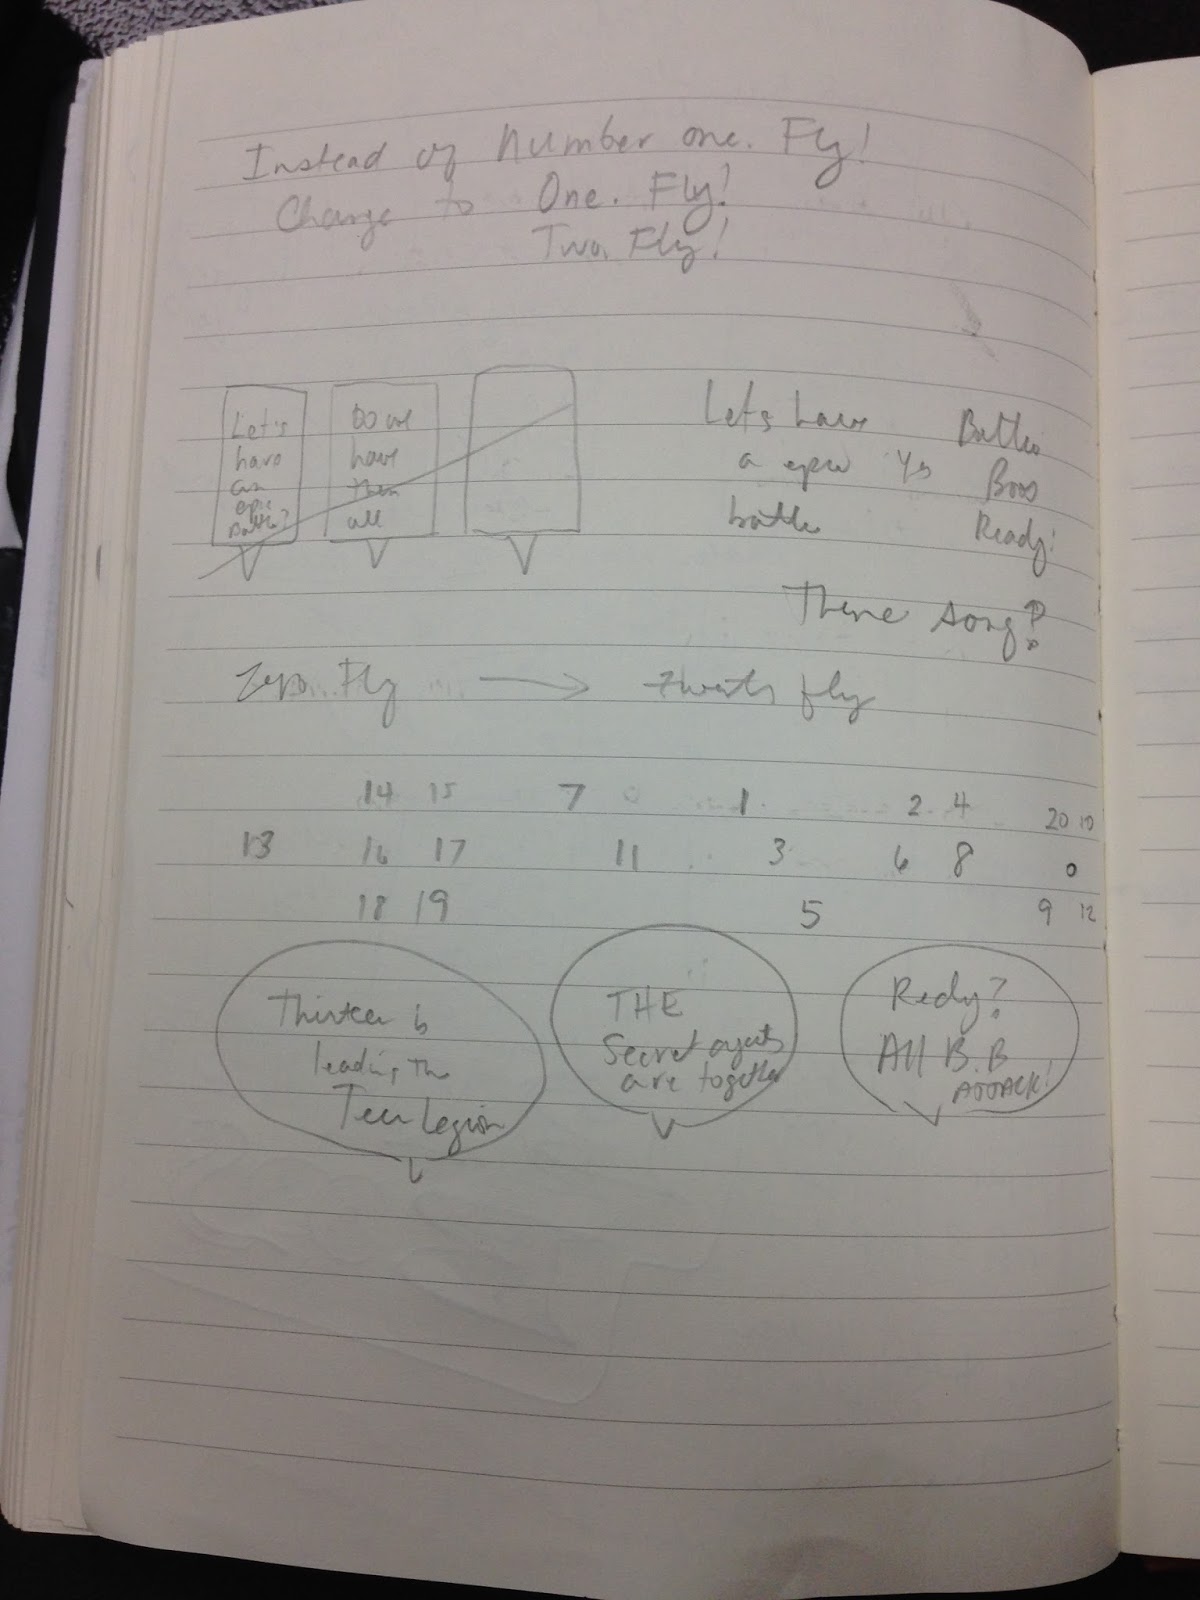 Instead of Number one. Fly!
Change to One. Fly!
Two. Fly!
Let's
have
an
epic
battle?
Do we
have
them
all
Lets have
a epic
battle
Yes
Battle
Boss
Ready!
Theme song?
Zero.. Fly → fly
14 15 7 0 1 2 4 20 10
13 16 17 11 3 6 8 0
18 19 5 9 12
Thirteen is
leading the
Teen Legion
THE
Secret agents
are together
Redy?
All B.B
ATTACK!